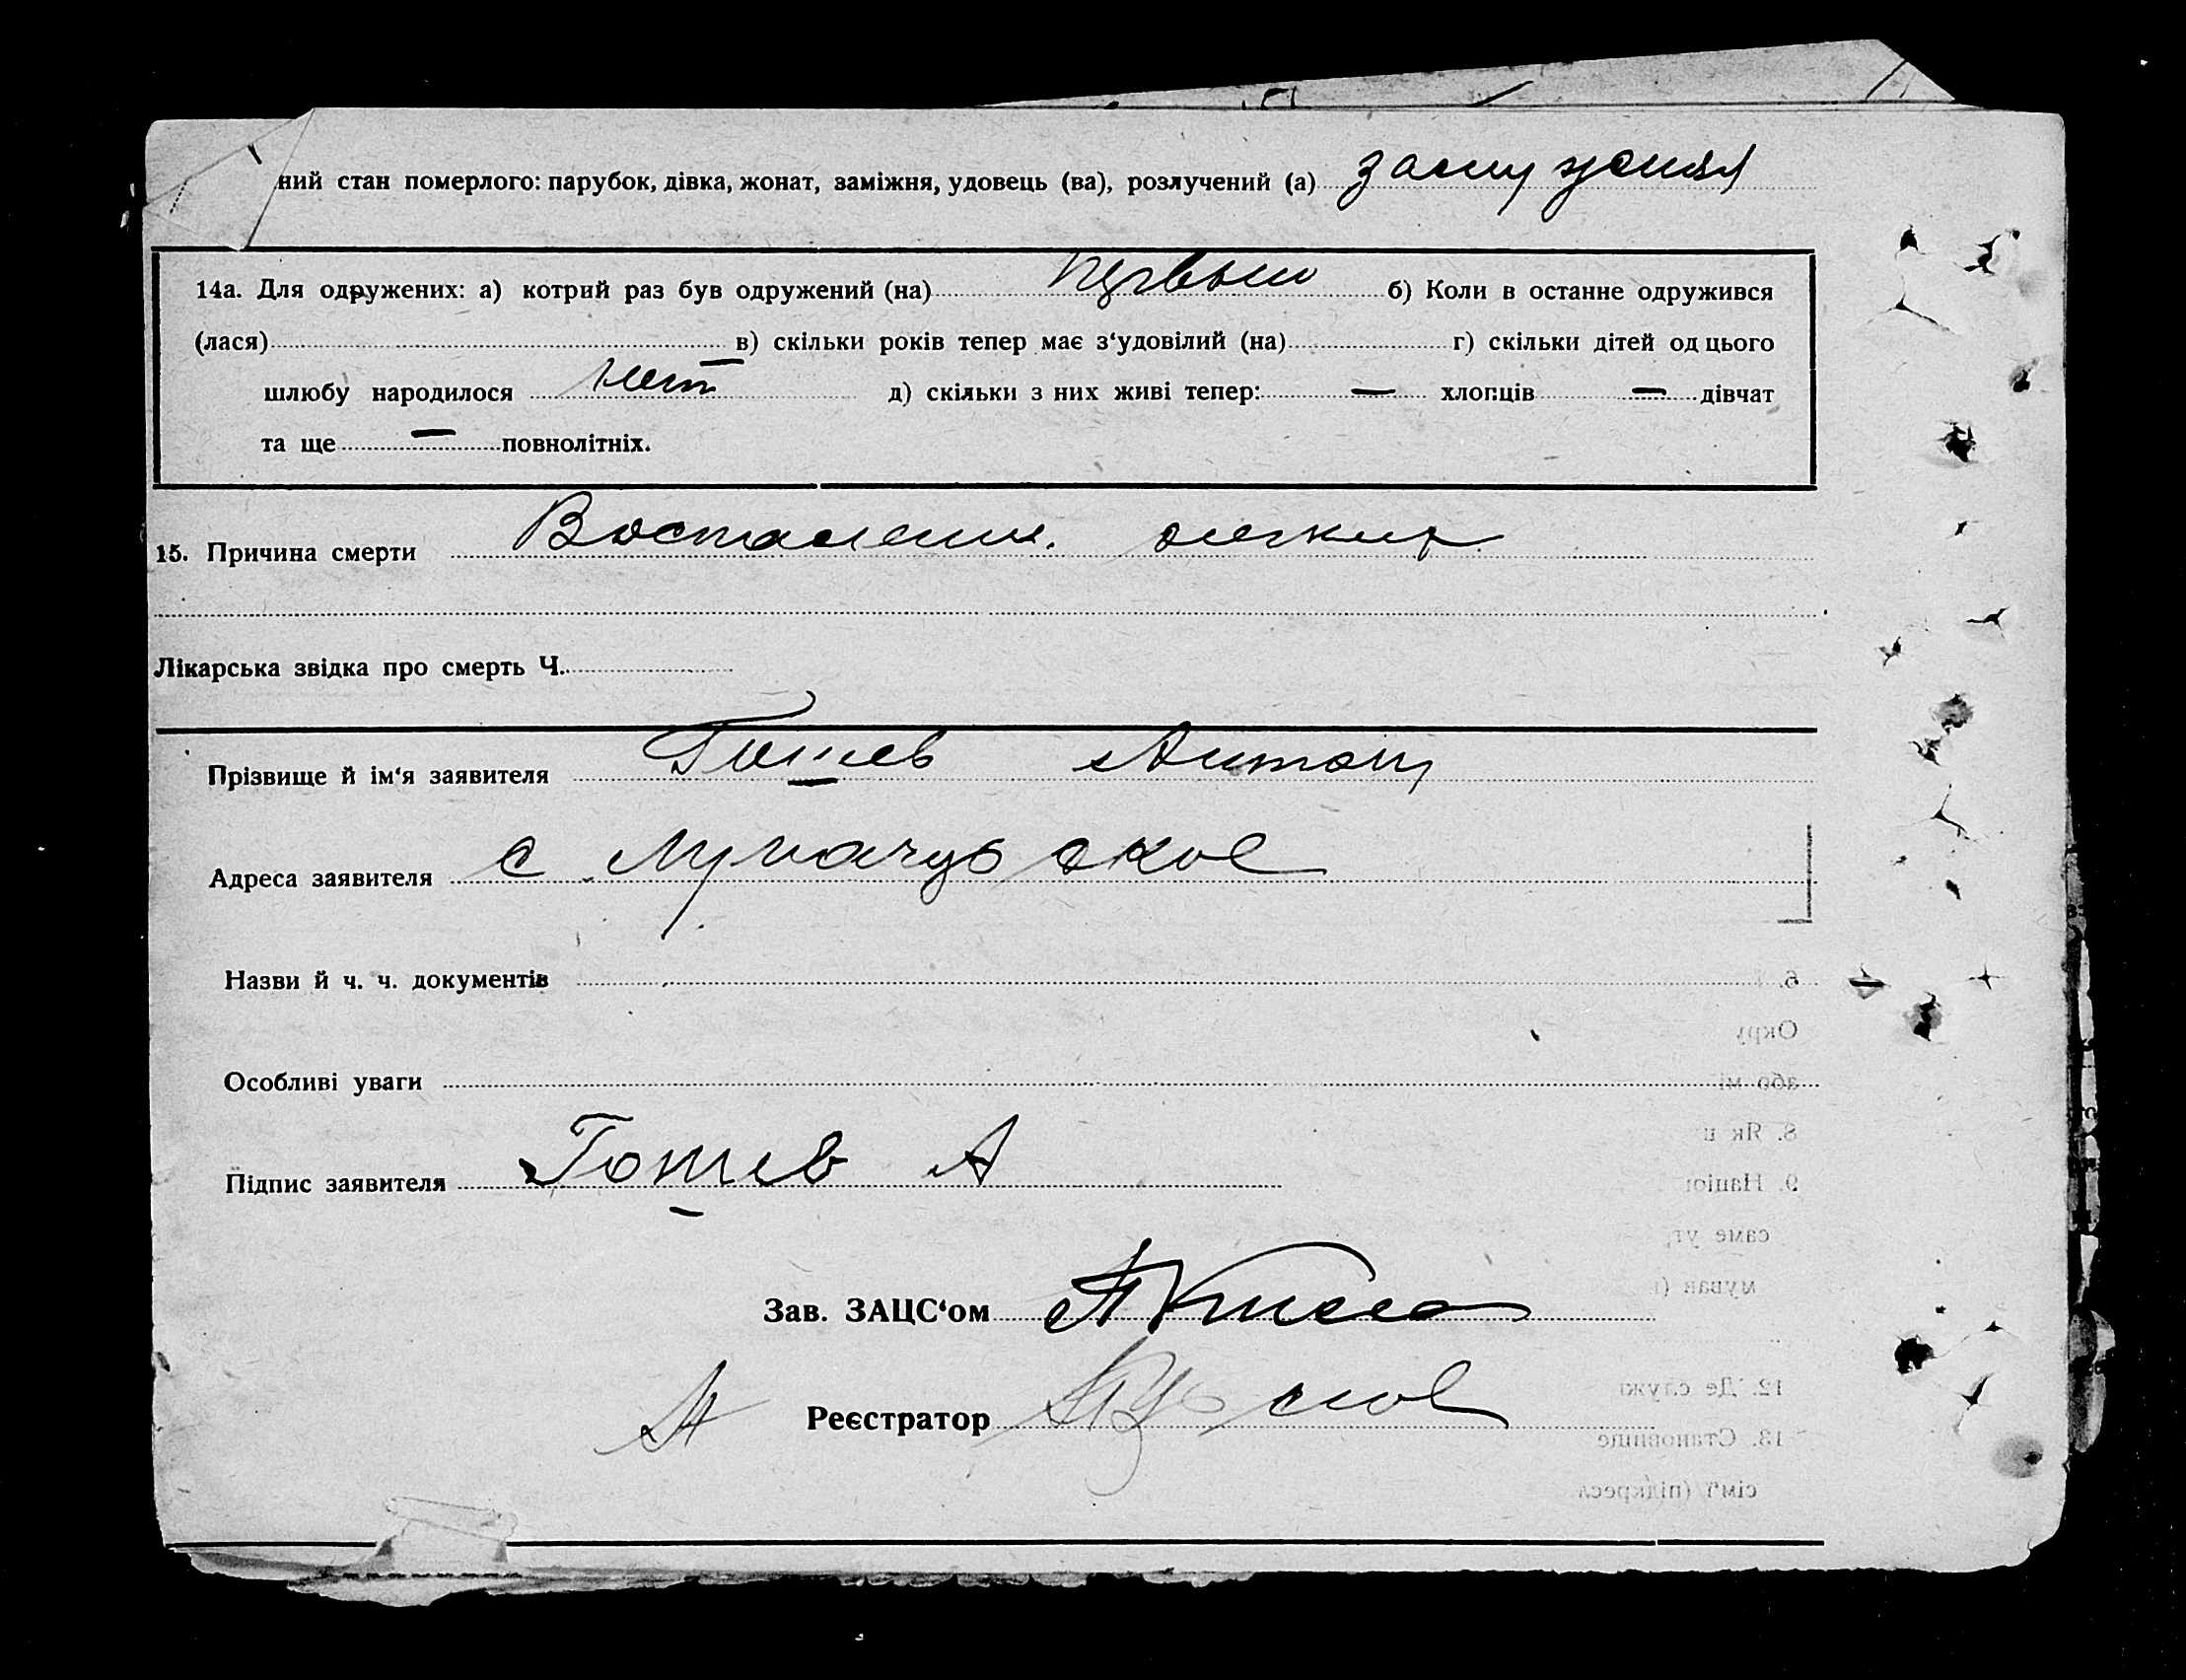 ний стан померлого: парубок, дівка, жонат, заміжня, удовець (ва), розлучений (а) замужняя
14а. Для одружених: а) котрий раз був одружений (на) первый б) Коли в останнє одружився
(лася) в) скільки років тепер має з‘удовілий (на) г) скільки дітей од цього
шлюбу народилося нет д) скільки з них живі тепер: — хлопців — дівчат
та ще — повнолітніх.
15. Причина смерти Воспаление легких
Лікарська звідка про смерть Ч.
Прізвище й ім‘я заявителя Гошев Антон
Адреса заявителя с
Назви й ч. ч. документів
6.
Окру
Особливі уваги
або мі
8. Як
Підпис заявителя Гошев А
9. Націо
саме ут
мував (
Зав. ЗАЦС‘ом
12. Де служи
Реєстратор
13. Становище
сім‘ї (підкресл